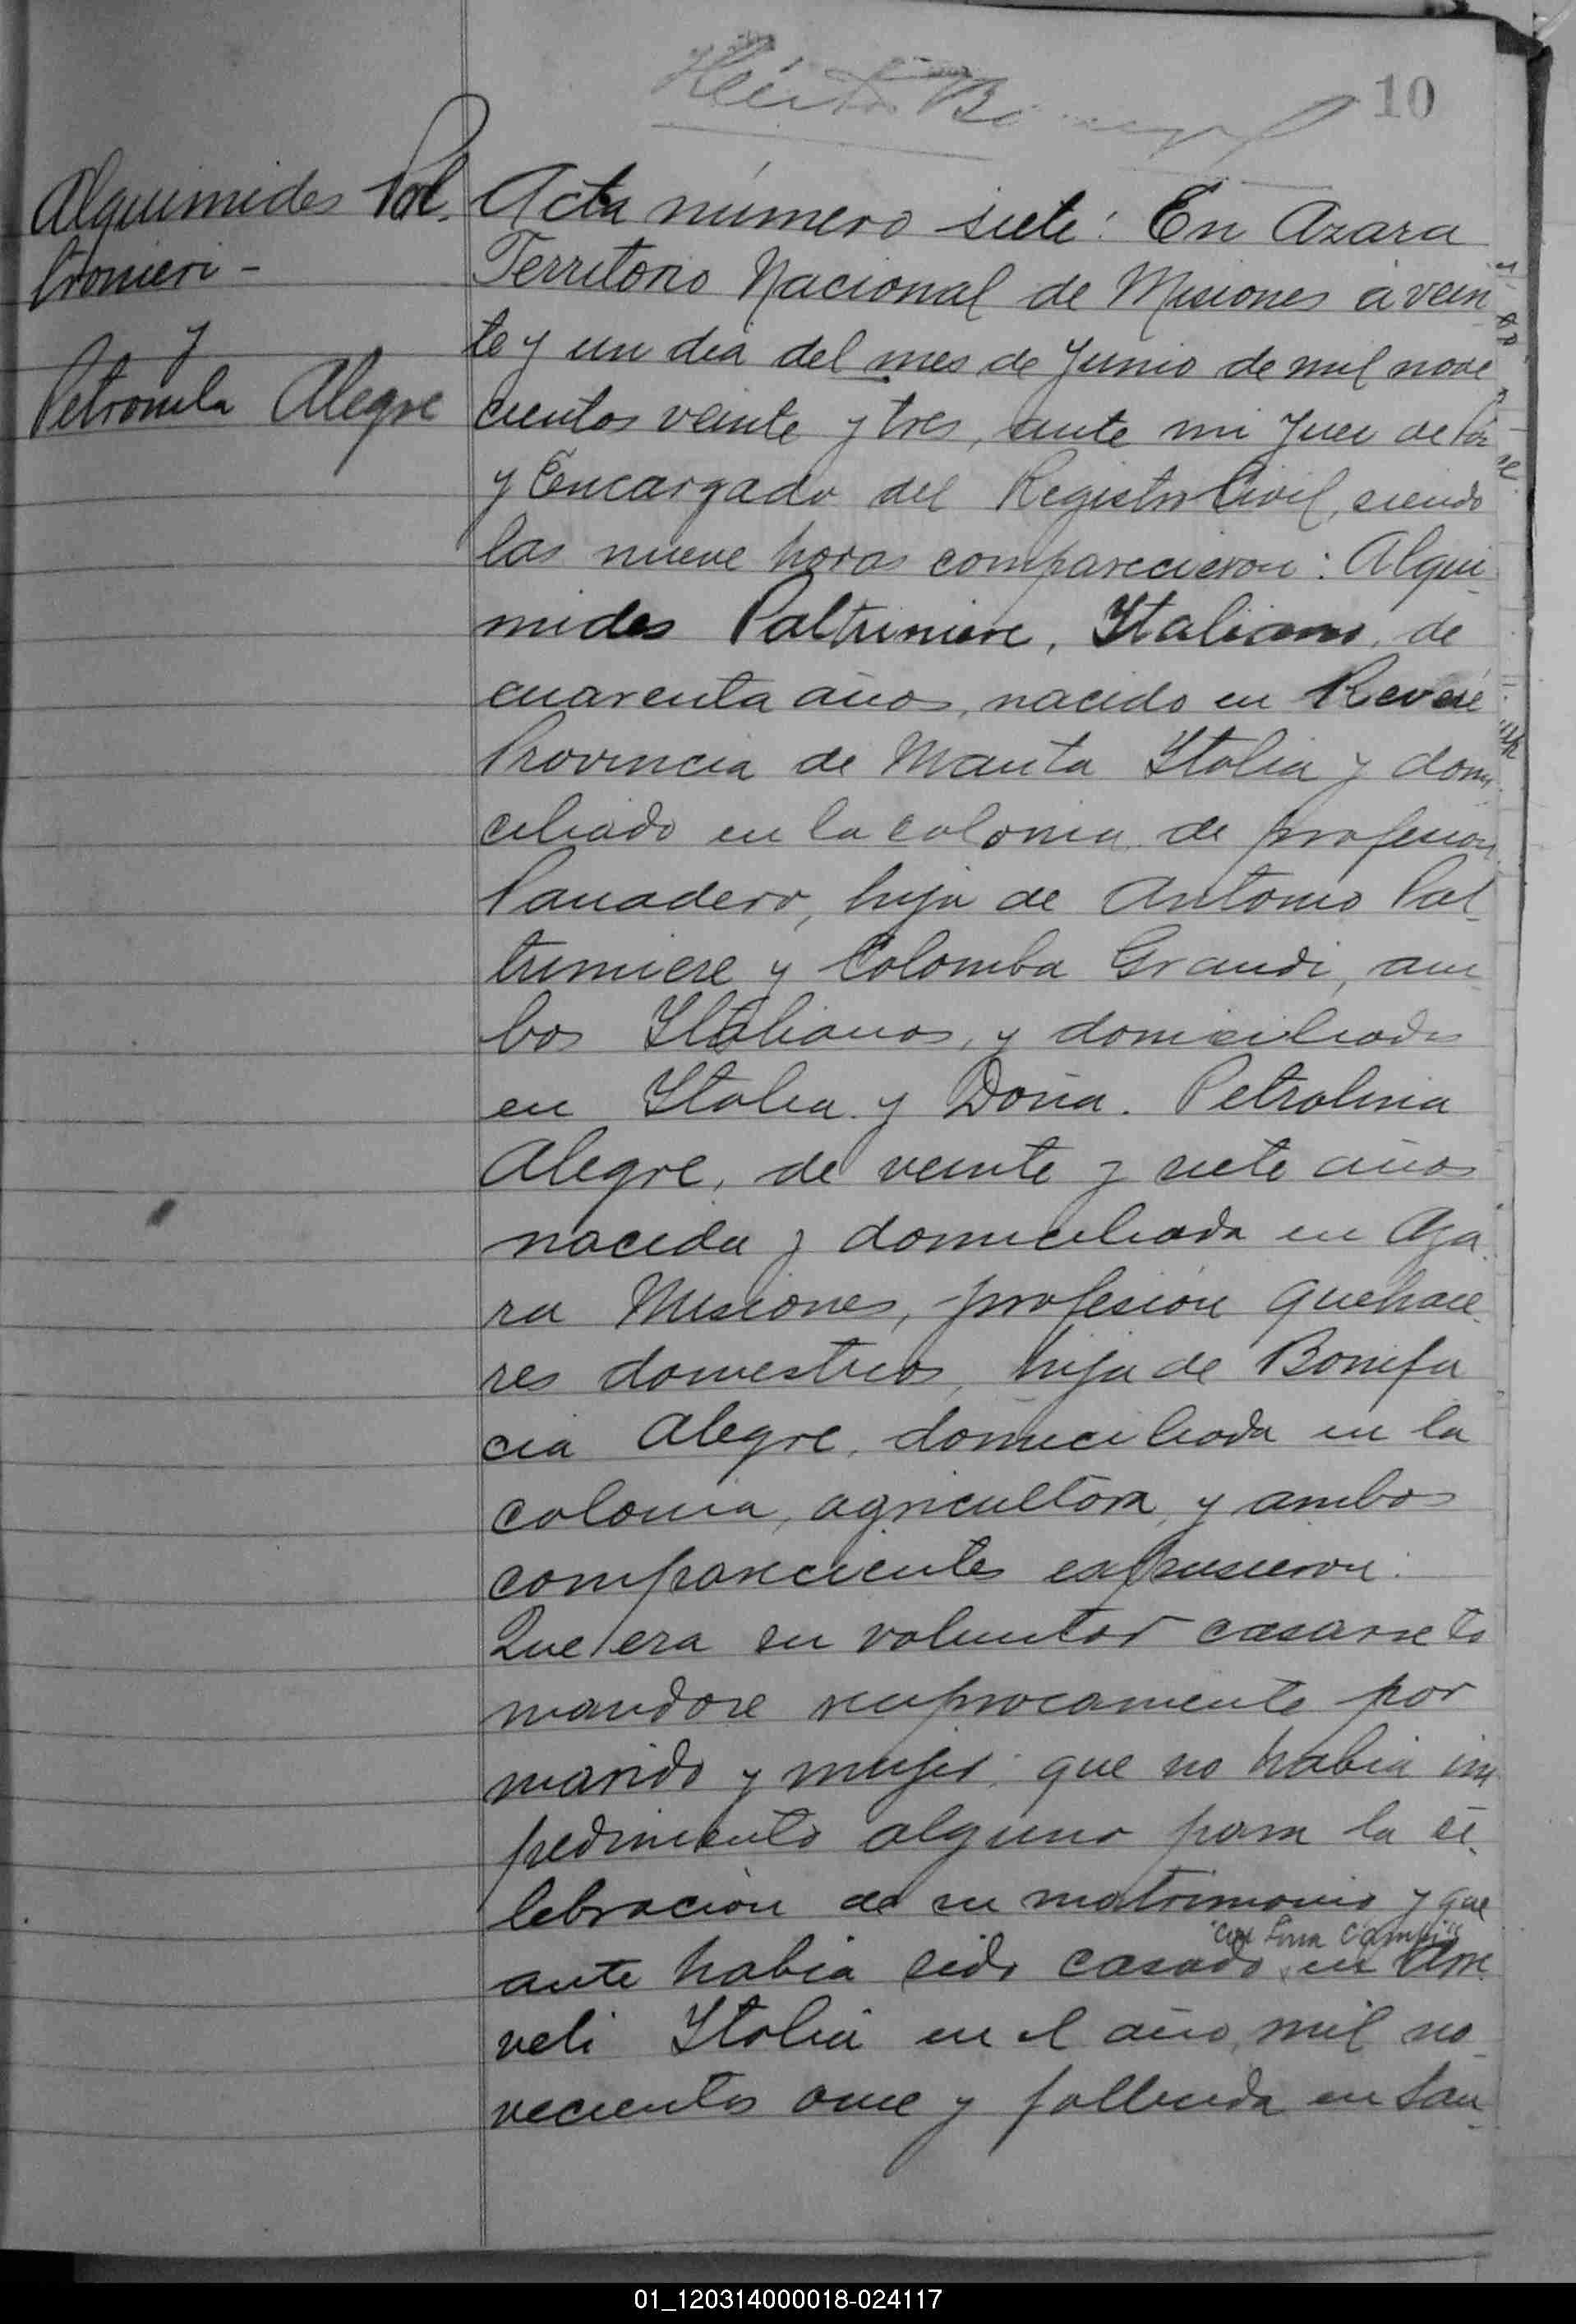 10
Alquimides Pal.
tronieri -
y
Petronila Alegre
Acta número siete: En Azara
Territorio Nacional de Misiones á vein
te y un dia del mes de Junio de mil nove
cientos veinte y tres, ante mi Juez de Paz
y Encargado del Registro Civil, siendo
las nueve horas comparecieron: Alqui
mides Paltriniere, Italiano, de
cuarenta años, nacido en Revere
Provincia de Manta Italia y domi
ciliado en la colonia de profesion
Panadero, hijo de Antonio Pal
triniere y Colomba Grandi, am
bos Italianos, y domiciliados
en Italia y Doña. Petrolina
Alegre, de veinte y siete años
nacida y domiciliada en Aza
ra Misiones, profesión quehace
res domesticos, hija de Bonifa
cia Alegre, domiciliada en la
colonia, agricultora, y ambos
comparecientes expusieron:
Que era su voluntad casarse to
mandose reciprocamente por
marido y mujer: que no habia im
pedimento alguno para la ce
lebracion de su matrimonio y que
ante habia sido casado en
veli Italia en el año, mil no
vecientos once y fallecida en San
01_120314000018-024117